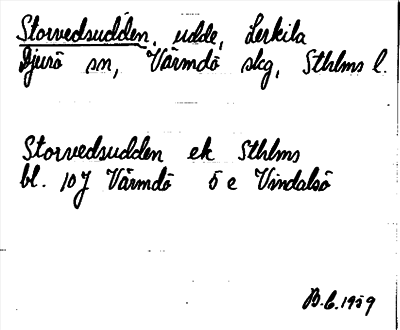 Storvedsudden, udde, Lerkila
Djurö sn, Värmdö skg, Sthlms l.
Storvedsudden ek Sthlms
bl. 10J Värmdö 5 e Vindalsö
B.C. 1959